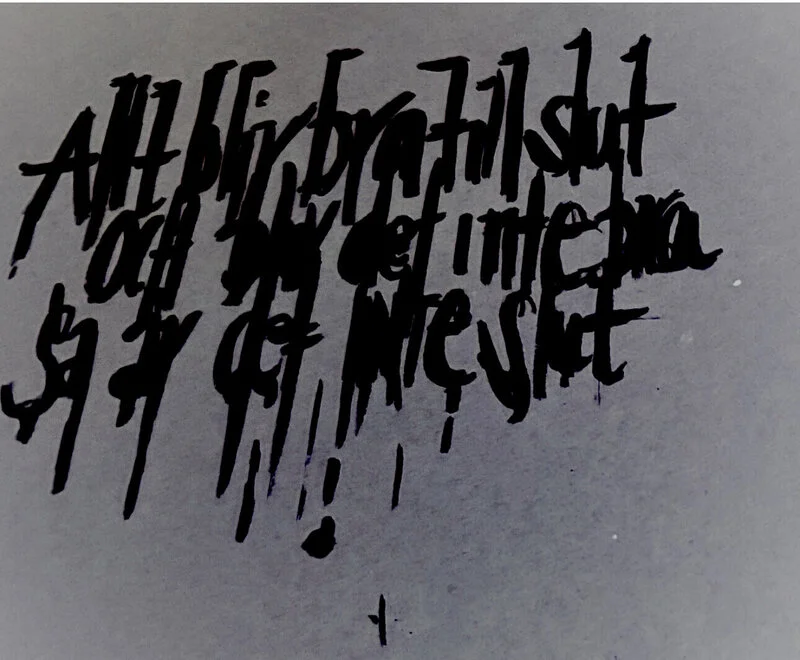 Allt blir bra till slut
och blir det inte bra
Så är det inte slut